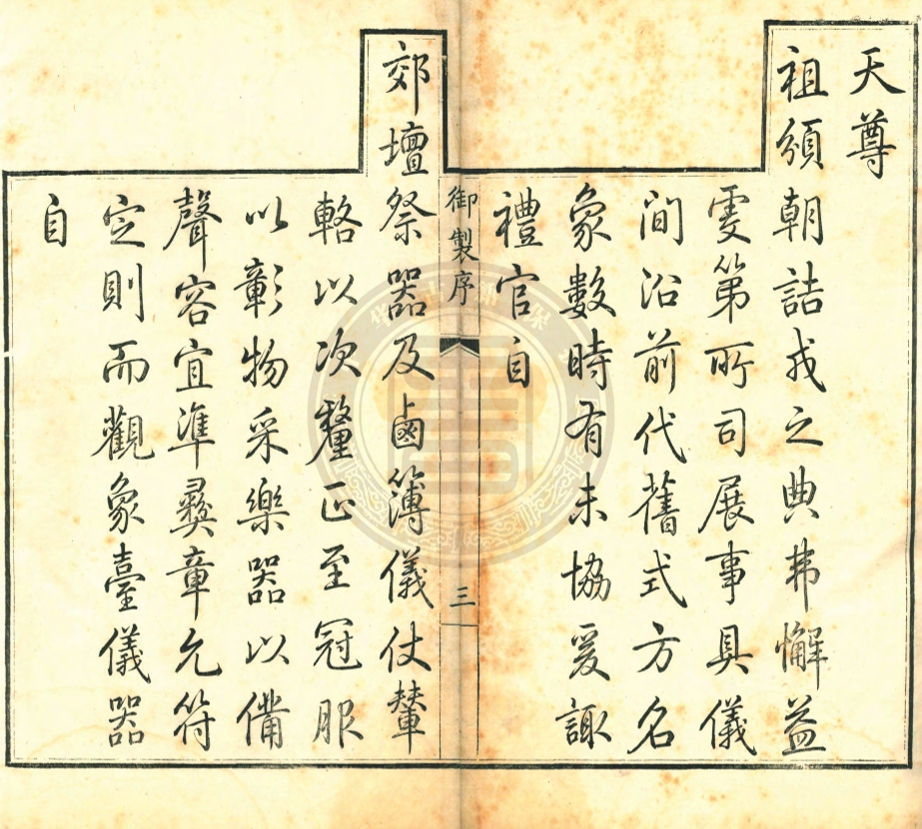 天尊
祖頒朝詰戎之典弗懈益
虔第所司展事具儀
間沿前代舊式方名
象數時有未協爰諏
禮官自
御製序
三
郊壇祭器及鹵簿儀仗輦
輅以次釐正至冠服
以彰物采樂器以備
聲容宜準彝章允符
定則而觀象臺儀器
自